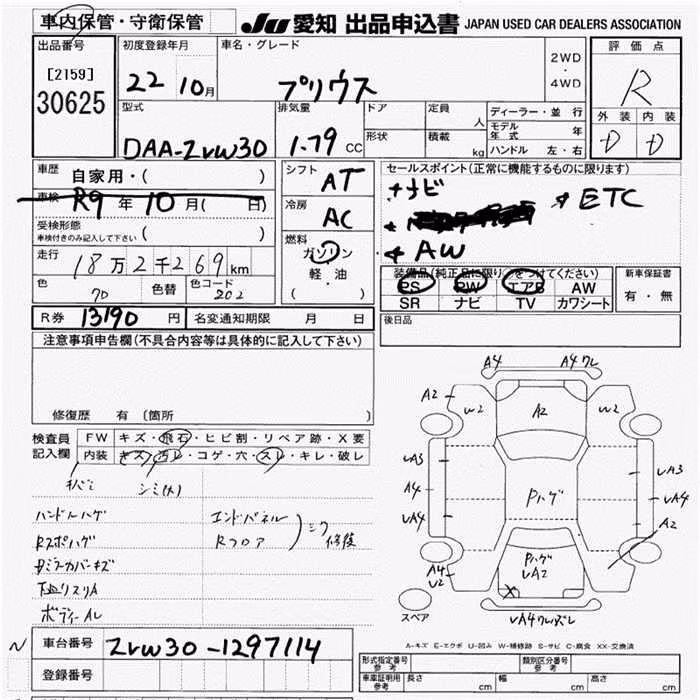 車内保管・守衛保管
JU 愛知 出品申込書 JAPAN USED CAR DEALERS ASSOCIATION
出品番号
[2159]
30625
初度登録年月
22 10月
車名・グレード
プリウス
2WD
・
4WD
評価点
R
外装 内装
D D
型式
DAA-ZVW30
排気量
1.79 CC
ドア
形状
定員 人
積載 kg
ディーラー・並行
モデル年式 年
ハンドル 左・右
車歴 自家用・( )
車検 R9年10月( 日)
受検形態
車検付きのみ記入して下さい ( )
走行 18万2千269km
色 70 色替 色コード 202
シフト AT
冷房 AC
燃料
ガソリン
軽・油
( )
セールスポイント(正常に機能するものに限ります)
ナビ
ETC
AW
装備品(純正品に限り○をつけてください)
PS PW エアB AW
SR ナビ TV カワシート
新車保証書
有・無
R券 13190円 名変通知期限 月 日
後日品
注意事項申告欄(不具合内容等は具体的に記入して下さい)
修復歴 有 (箇所
検査員記入欄
FW キズ・飛石・ヒビ割・リペア跡・X要
内装 キズ・汚レ・コゲ・穴・スレ・キレ・破レ
シミ(大)
ハンドルハゲ
エンドパネル
Rフロア
修復
Rスポハゲ
ミラーカバーキズ
下廻リスリA
ボディーAL
A4 A4ワレ
A2 W2 A2 W2
UA3 UA3
A4 UA4
UA4 A2
Pハゲ
Pハゲ
UA2
A4
U2
X
スペア
UA4ワレズレ
A-キズ E-エクボ U-凹み W-補修跡 S-サビ C-腐食 XX-交換済
N
車台番号 ZVW30-1297114
登録番号
形式指定番号 参考
類別区分番号 参考
車庫証明用 参考 長さ cm 幅 cm 高さ cm